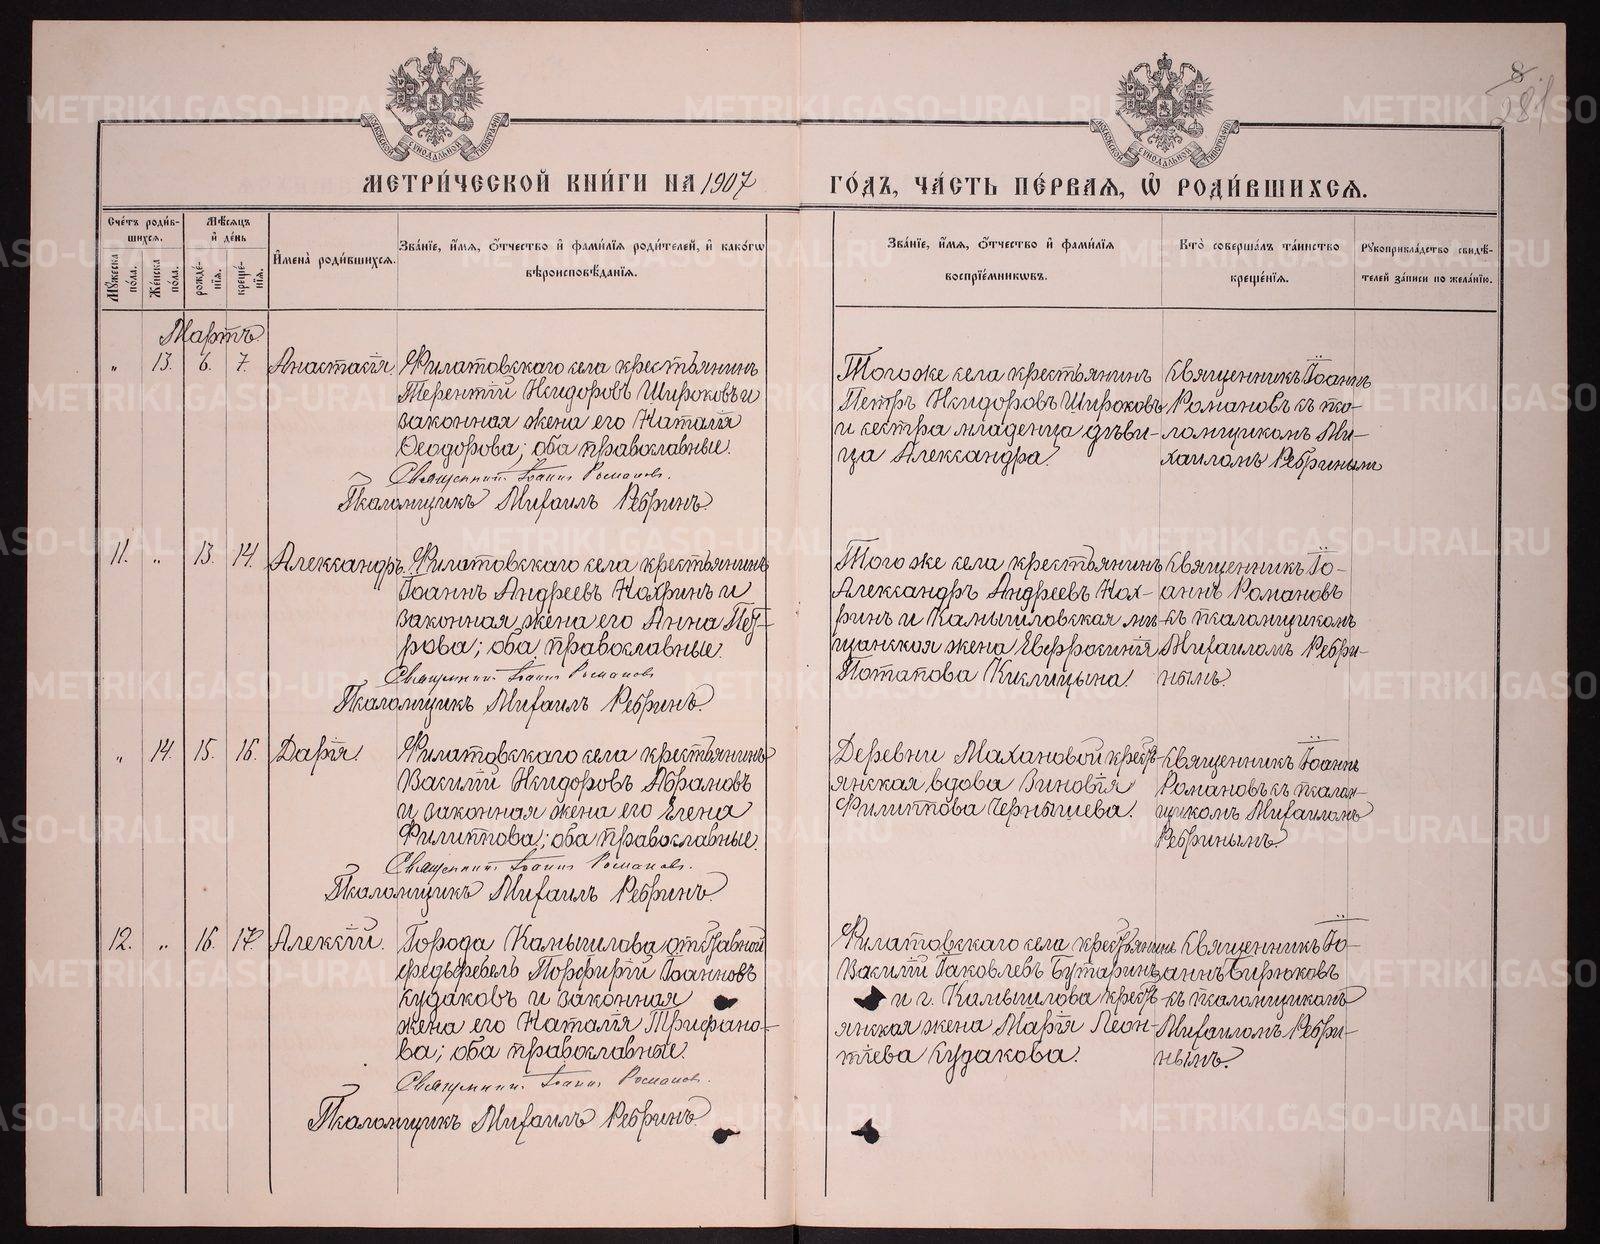 8
281
МОСКОВСКОЙ СѴНОДАЛЬНОЙ ТИПОГРАФІИ
МОСКОВСКОЙ СѴНОДАЛЬНОЙ ТИПОГРАФІИ
МЕТРИ́ЧЕСКОЙ КНИ́ГИ НА 1907 ГО́ДЪ, ЧА́СТЬ ПЕ́РВАЯ, Ѡ҆ РОДИ́ВШИХСЯ.
Сче́тъ роди́в-
шихся.
Му́жеска по́ла.
Же́нска по́ла.
Мѣ́сяцъ
и҆ де́нь
рожде́-
нїя.
креще́-
нїя.
И҆мена̀ роди́вшихся.
Зва́нїе, и҆́мя, ѻ҆́тчество и҆ фами́лїя роди́телей, и҆ како́гѡ
вѣроисповѣ́данїя.
Зва́нїе, и҆́мя, ѻ҆́тчество и҆ фами́лїя
воспрїе́мникѡвъ.
Кто̀ соверша́лъ та́инство
креще́нїя.
Рукоприкла́дство свидѣ́-
телей за́писи по жела́нїю.
Мартъ
„ 13. 6. 7. Анастасія.
Филатовскаго села крестьянинъ
Терентій Исидоровъ Широковъ и
законная жена его Наталія
Ѳеодорова; оба православные.
Священникъ Іоаннъ Романовъ.
Псаломщикъ Михаилъ Ребринъ.
Того же села крестьянинъ
Петръ Исидоровъ Широковъ
и сестра младенца дѣви-
ца Александра.
Священникъ Іоаннъ
Романовъ съ пса-
ломщикомъ Ми-
хаиломъ Ребринымъ
11. „ 13. 14. Александръ.
Филатовскаго села крестьянинъ
Іоаннъ Андреевъ Кохринъ и
законная жена его Анна Пет-
рова; оба православные.
Священникъ Іоаннъ Романовъ
Псаломщикъ Михаилъ Ребринъ.
Того же села крестьянинъ
Александръ Андреевъ Кох-
ринъ и Камышловская мѣ-
щанская жена Евфросинія
Потапова Киклицына.
Священникъ Іо-
аннъ Романовъ
съ псаломщикомъ
Михаиломъ Ребри-
нымъ.
„ 14. 15. 16. Дарія.
Филатовскаго села крестьянинъ
Василій Исидоровъ Абрамовъ
и законная жена его Елена
Филиппова; оба православные.
Священникъ Іоаннъ Романовъ.
Псаломщикъ Михаилъ Ребринъ.
Деревни Махановой кресть-
янская вдова Зиновія
Филиппова Чернышева.
Священникъ Іоаннъ
Романовъ съ псалом-
щикомъ Михаиломъ
Ребринымъ.
12. „ 16. 17. Алексій.
Города Камышлова отставной
фельдфебель Порфирій Іоанновъ
Кудаковъ и законная
жена его Наталія Трифано-
ва; оба православные.
Священникъ Іоаннъ Романовъ.
Псаломщикъ Михаилъ Ребринъ.
Филатовскаго села крестьянинъ
Василій Іаковлевъ Бутаринъ
и г. Камышлова кресть-
янская жена Марія Леон-
тіева Кудакова.
Священникъ Іо-
аннъ Бирюковъ
съ псаломщикомъ
Михаиломъ Ребри-
нымъ.
METRIKI.GASO-URAL.RU